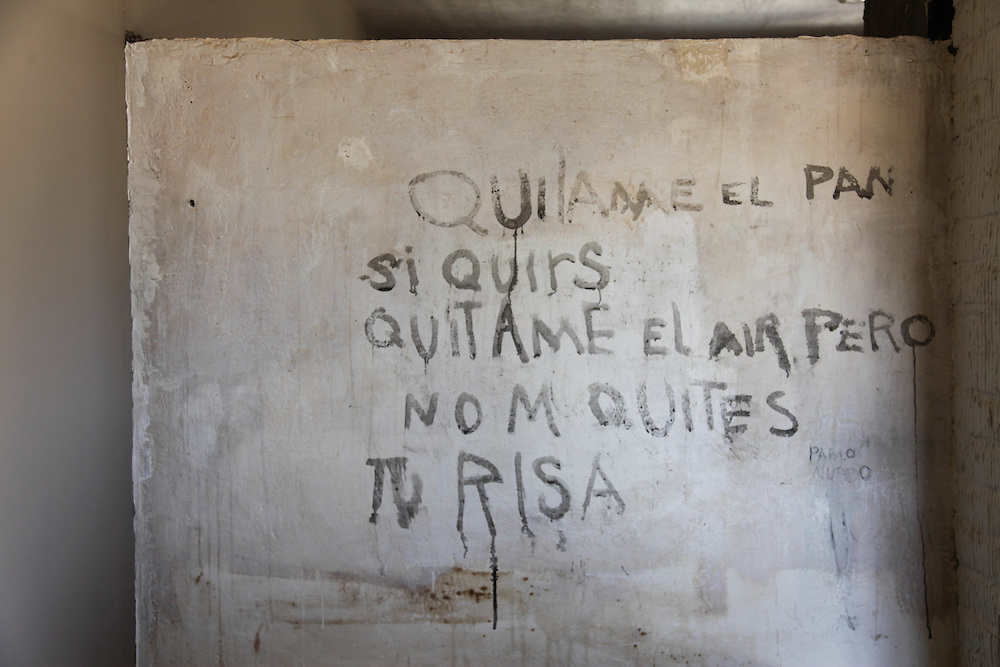 QUITAME EL PAN
Si QUIrS
QUITAME EL AIR PERO
NO M QUITES
TU RISA
PABLO
NURDO